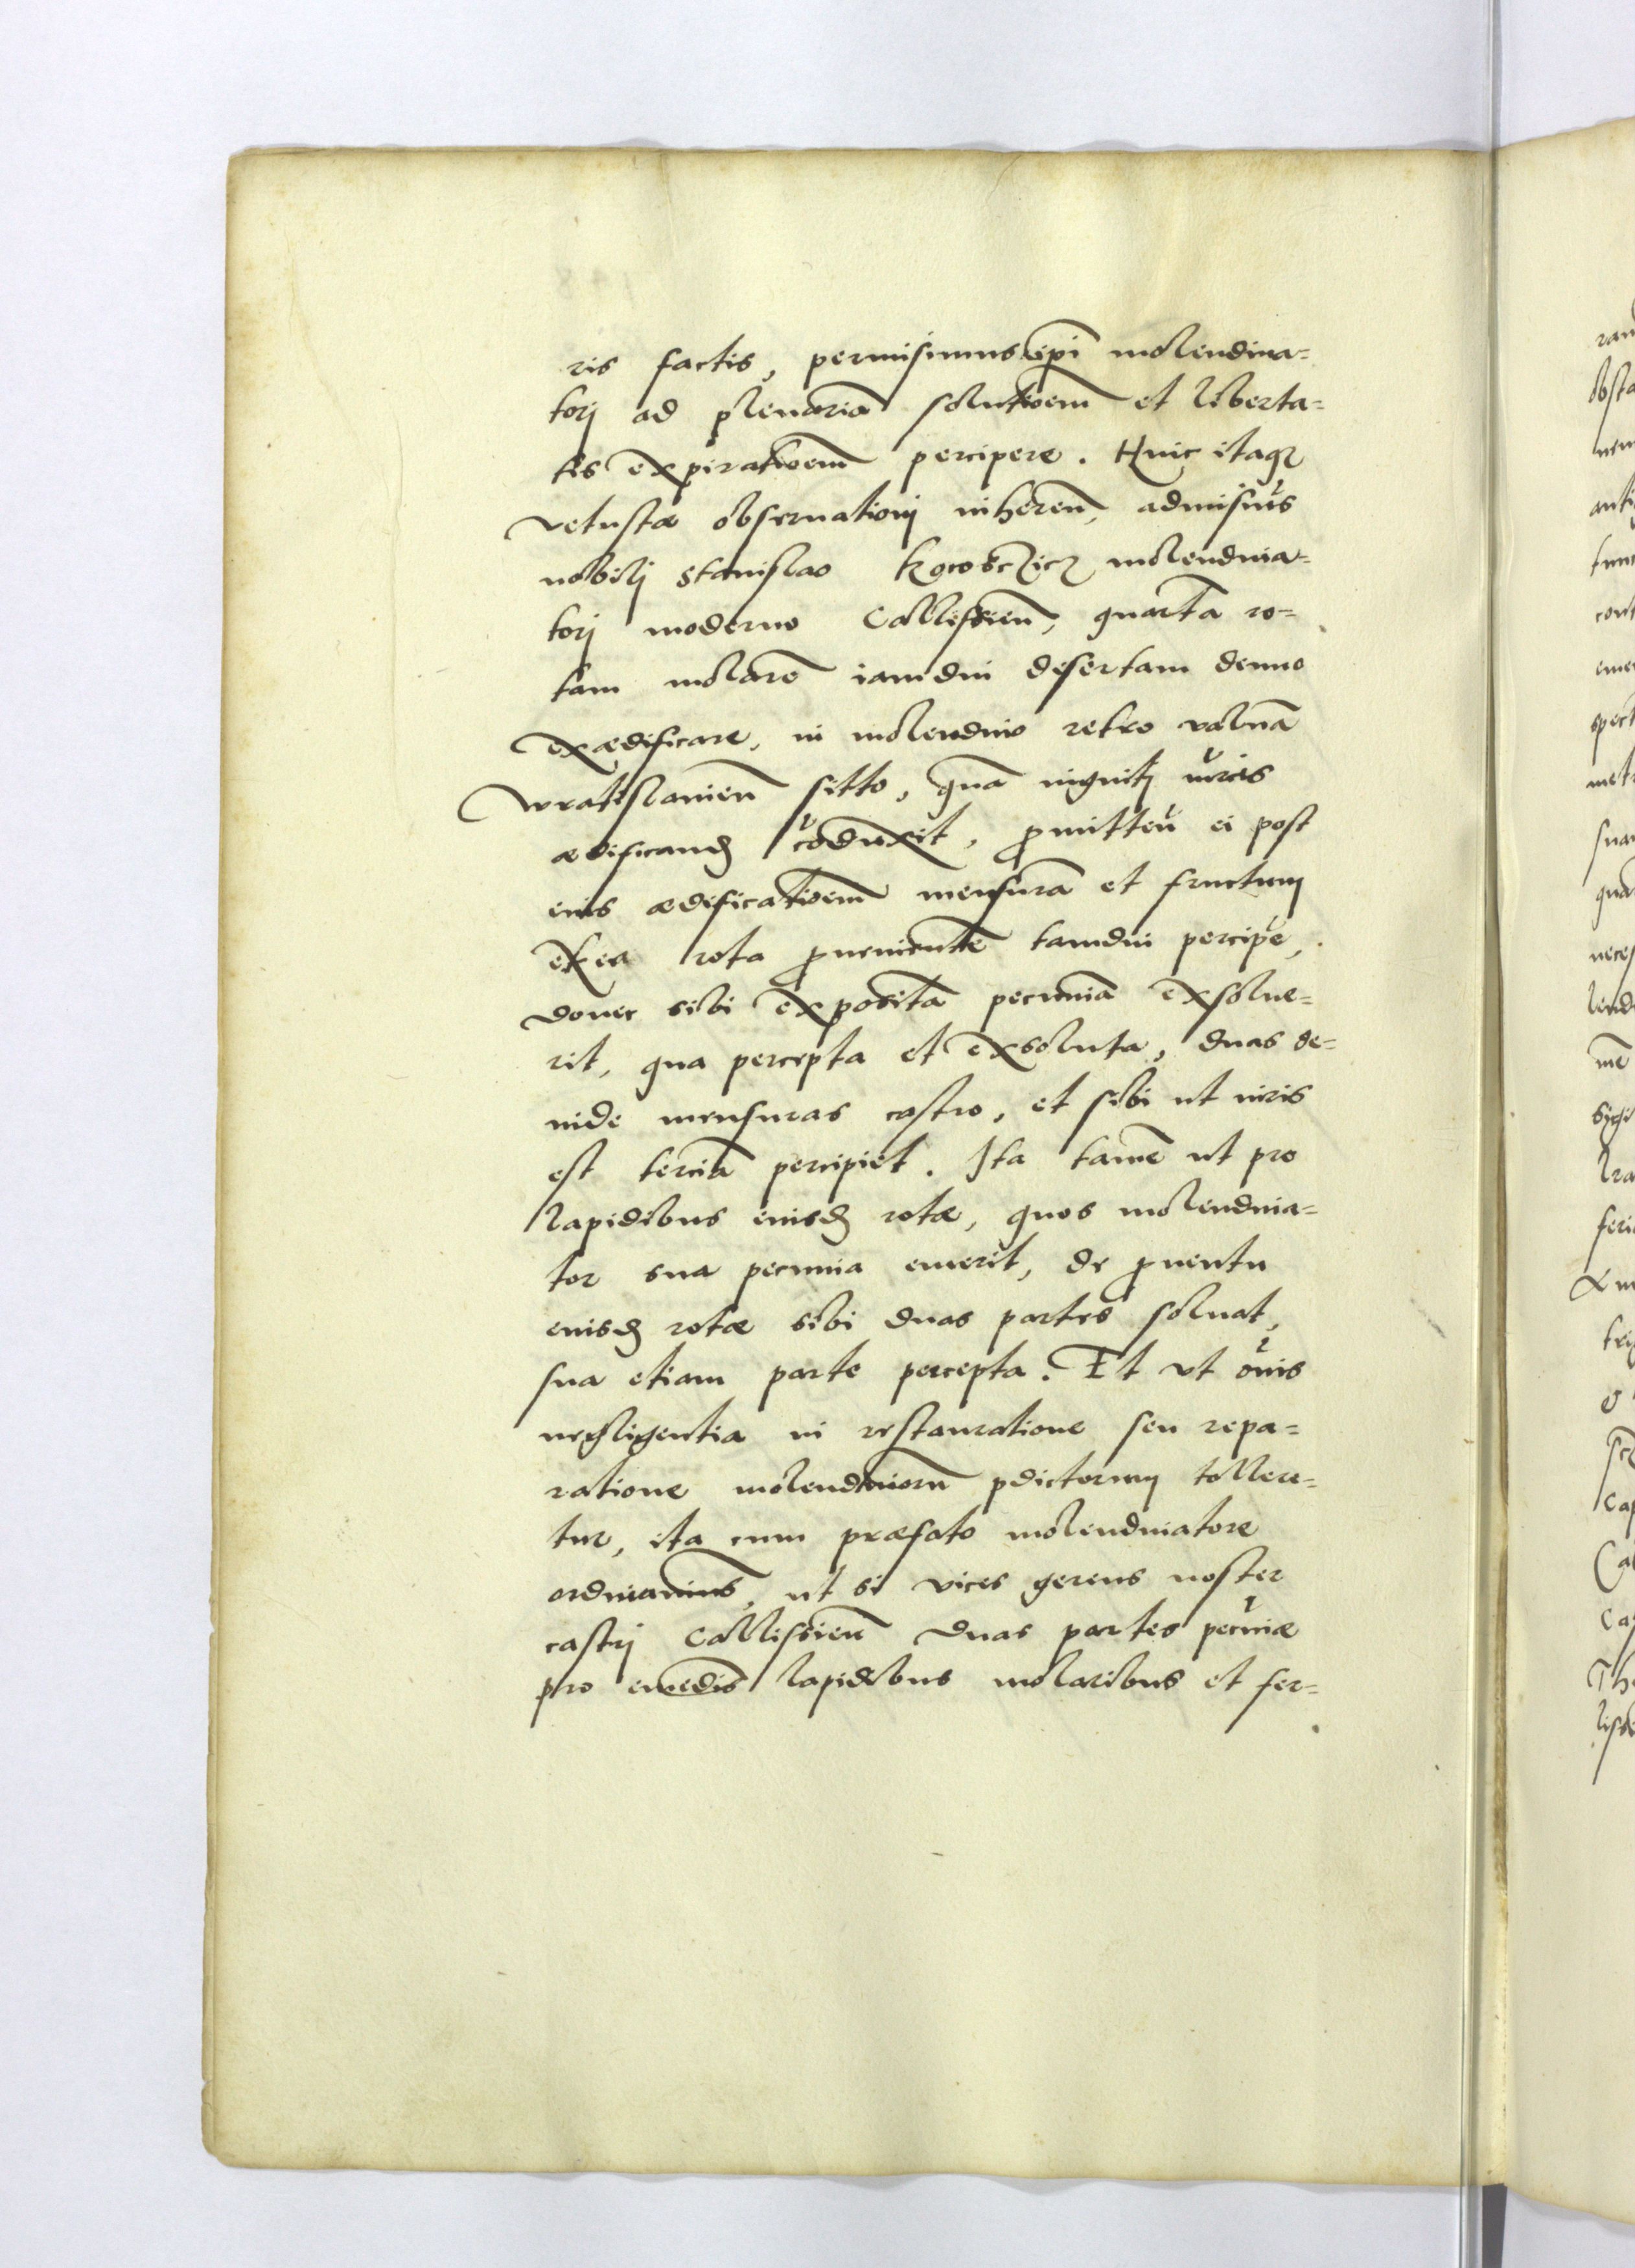 ris factis, permisimus ip̄i molendina=
torj ad plenariā solutioem̄ et liberta=
tis expiratioem̄ percipere. Huic itaqȝ
vetustæ obseruationj inheren̄, admisim̄s
nobilj Stanislao molendina=
torj moderno Callissien̄, quartā ro=
tam molarē iamdiu desertam denuo
exædificare, in molendino retro valuā
Wratislauien̄ sitto, quā viginti m̄rcis
ædificand̄ cōduxit, ꝓmitten̄ ei post
eius ædificatioem̄ mensurā et fructum
ex ea rota ꝓuenientē tamdiu percipē,
donec sibi expositā pecuniā exsolue=
rit, qua percepta et exsoluta, duas de=
inde mensuras castro, et sibi ut iuris
est terciā percipiet. Ita tamē ut pro
lapidibus eiusd̄ rotæ, quos molendina=
tor sua pecunia emerit, de ꝓuentu
eiusd̄ rotæ sibi duas partes soluat,
sua etiam parte percepta. Et vt ōnis
negligentia in restauratione seu repa=
ratione molendinorū p̄dictorum tollere=
tur, ita cum præfato molendinatore
ordinauim̄s, ut si vices gerens noster
castrj Callissien̄ duas partes pecūiæ
pro emēdis lapidibus molaribus et fer=